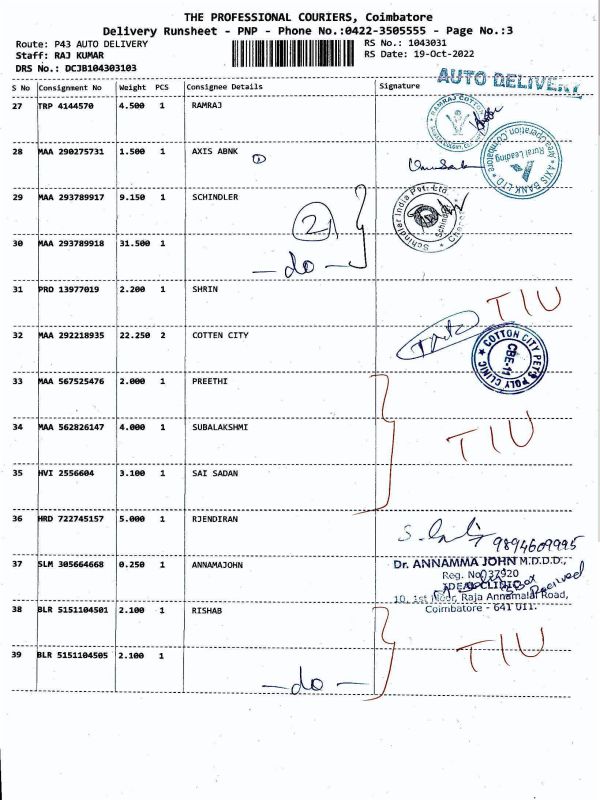 THE PROFESSIONAL COURIERS, Coimbatore
Delivery Runsheet - PNP - Phone No.:0422-3505555 - Page No.:3
Route: P43 AUTO DELIVERY RS No.: 1043031
Staff: RAJ KUMAR RS Date: 19-Oct-2022
DRS No.: DCJB104303103
AUTO DELIVERY
S No Consignment No Weight PCS Consignee Details Signature
27 TRP 4144570 4.500 1 RAMRAJ
RAMRAJ COTTON
28 MAA 290275731 1.500 1 AXIS ABNK
1
AXIS BANK LTD
Rural Lending
Area Operation Coimbatore
29 MAA 293789917 9.150 1 SCHINDLER
21
Schindler India Pvt. Ltd.
Schindler
30 MAA 293789918 31.500 1
- do -
31 PRO 13977019 2.200 1 SHRIN
TIU
32 MAA 292218935 22.250 2 COTTEN CITY
COTTON CITY PETS POLY CLINIC
CBE-11
33 MAA 567525476 2.000 1 PREETHI
34 MAA 562826147 4.000 1 SUBALAKSHMI
TIU
35 HVI 2556604 3.100 1 SAI SADAN
36 HRD 722745157 5.000 1 RJENDIRAN
9894609995
37 SLM 305664668 0.250 1 ANNAMAJOHN
Dr. ANNAMMA JOHN M.D.D.D.,
Reg. No 37920
IDEAL CLINIC
Box Received
10, 1st Floor, Raja Annamalai Road,
Coimbatore - 641 011.
38 BLR 5151104501 2.100 1 RISHAB
TIU
39 BLR 5151104505 2.100 1
- do -